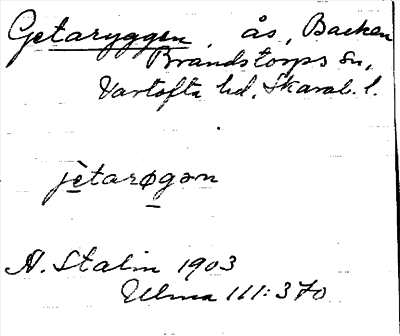 Getaryggen, ås, Backen
Brandstorps sn,
Vartofta hd. Skarab. l.
jètarøgən
A. Stalin 1903
Ulma 111:370